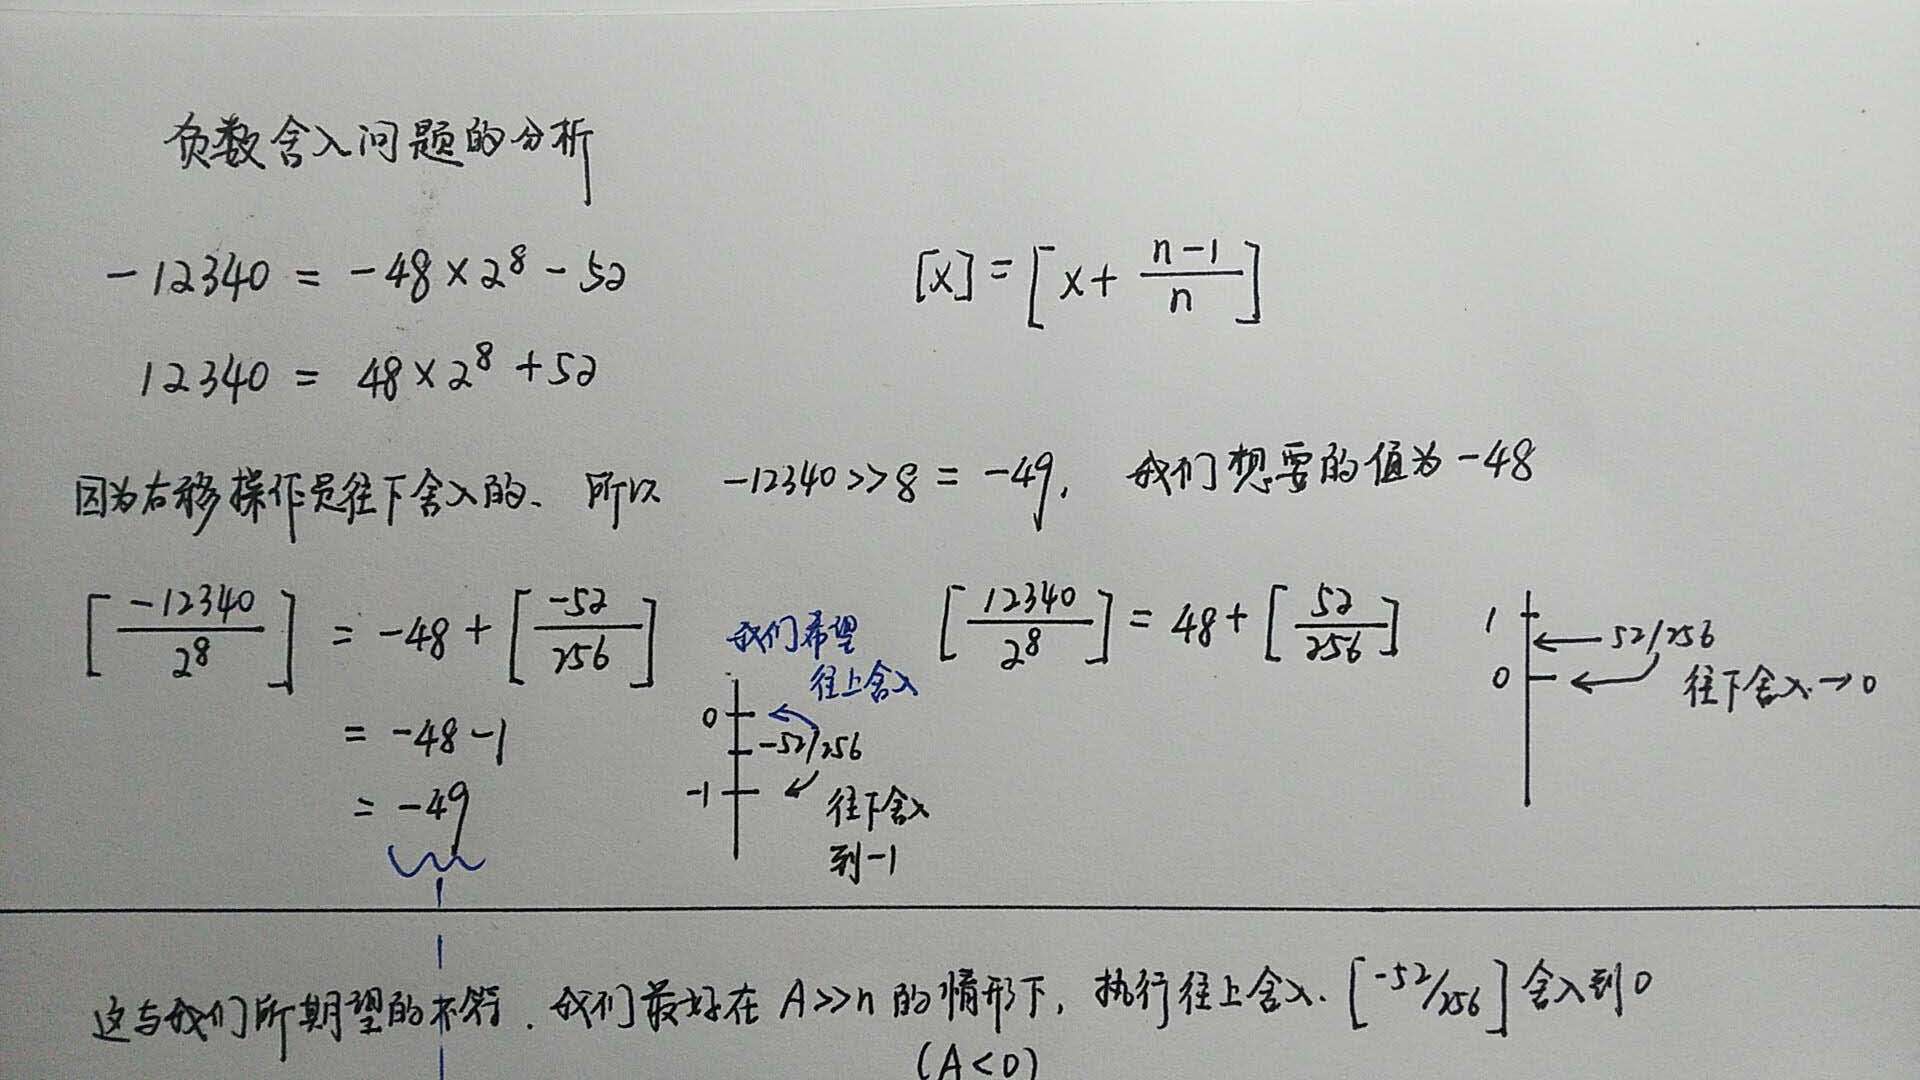 负数舍入问题的分析
-12340 = -48×2⁸ - 52
[x] = [x + (n-1)/n]
12340 = 48×2⁸ + 52
因为右移操作是往下舍入的、所以 -12340>>8 = -49, 我们想要的值为-48
[-12340/2⁸] = -48 + [-52/256]
= -48-1
= -49
我们希望
往上舍入
0
-52/256
-1
往下舍入
到-1
[12340/2⁸] = 48 + [52/256]
1
52/256
0
往下舍入→0
这与我们所期望的不符. 我们最好在 A>>n 的情形下, 执行往上舍入. [-52/256] 舍入到0
(A<0)